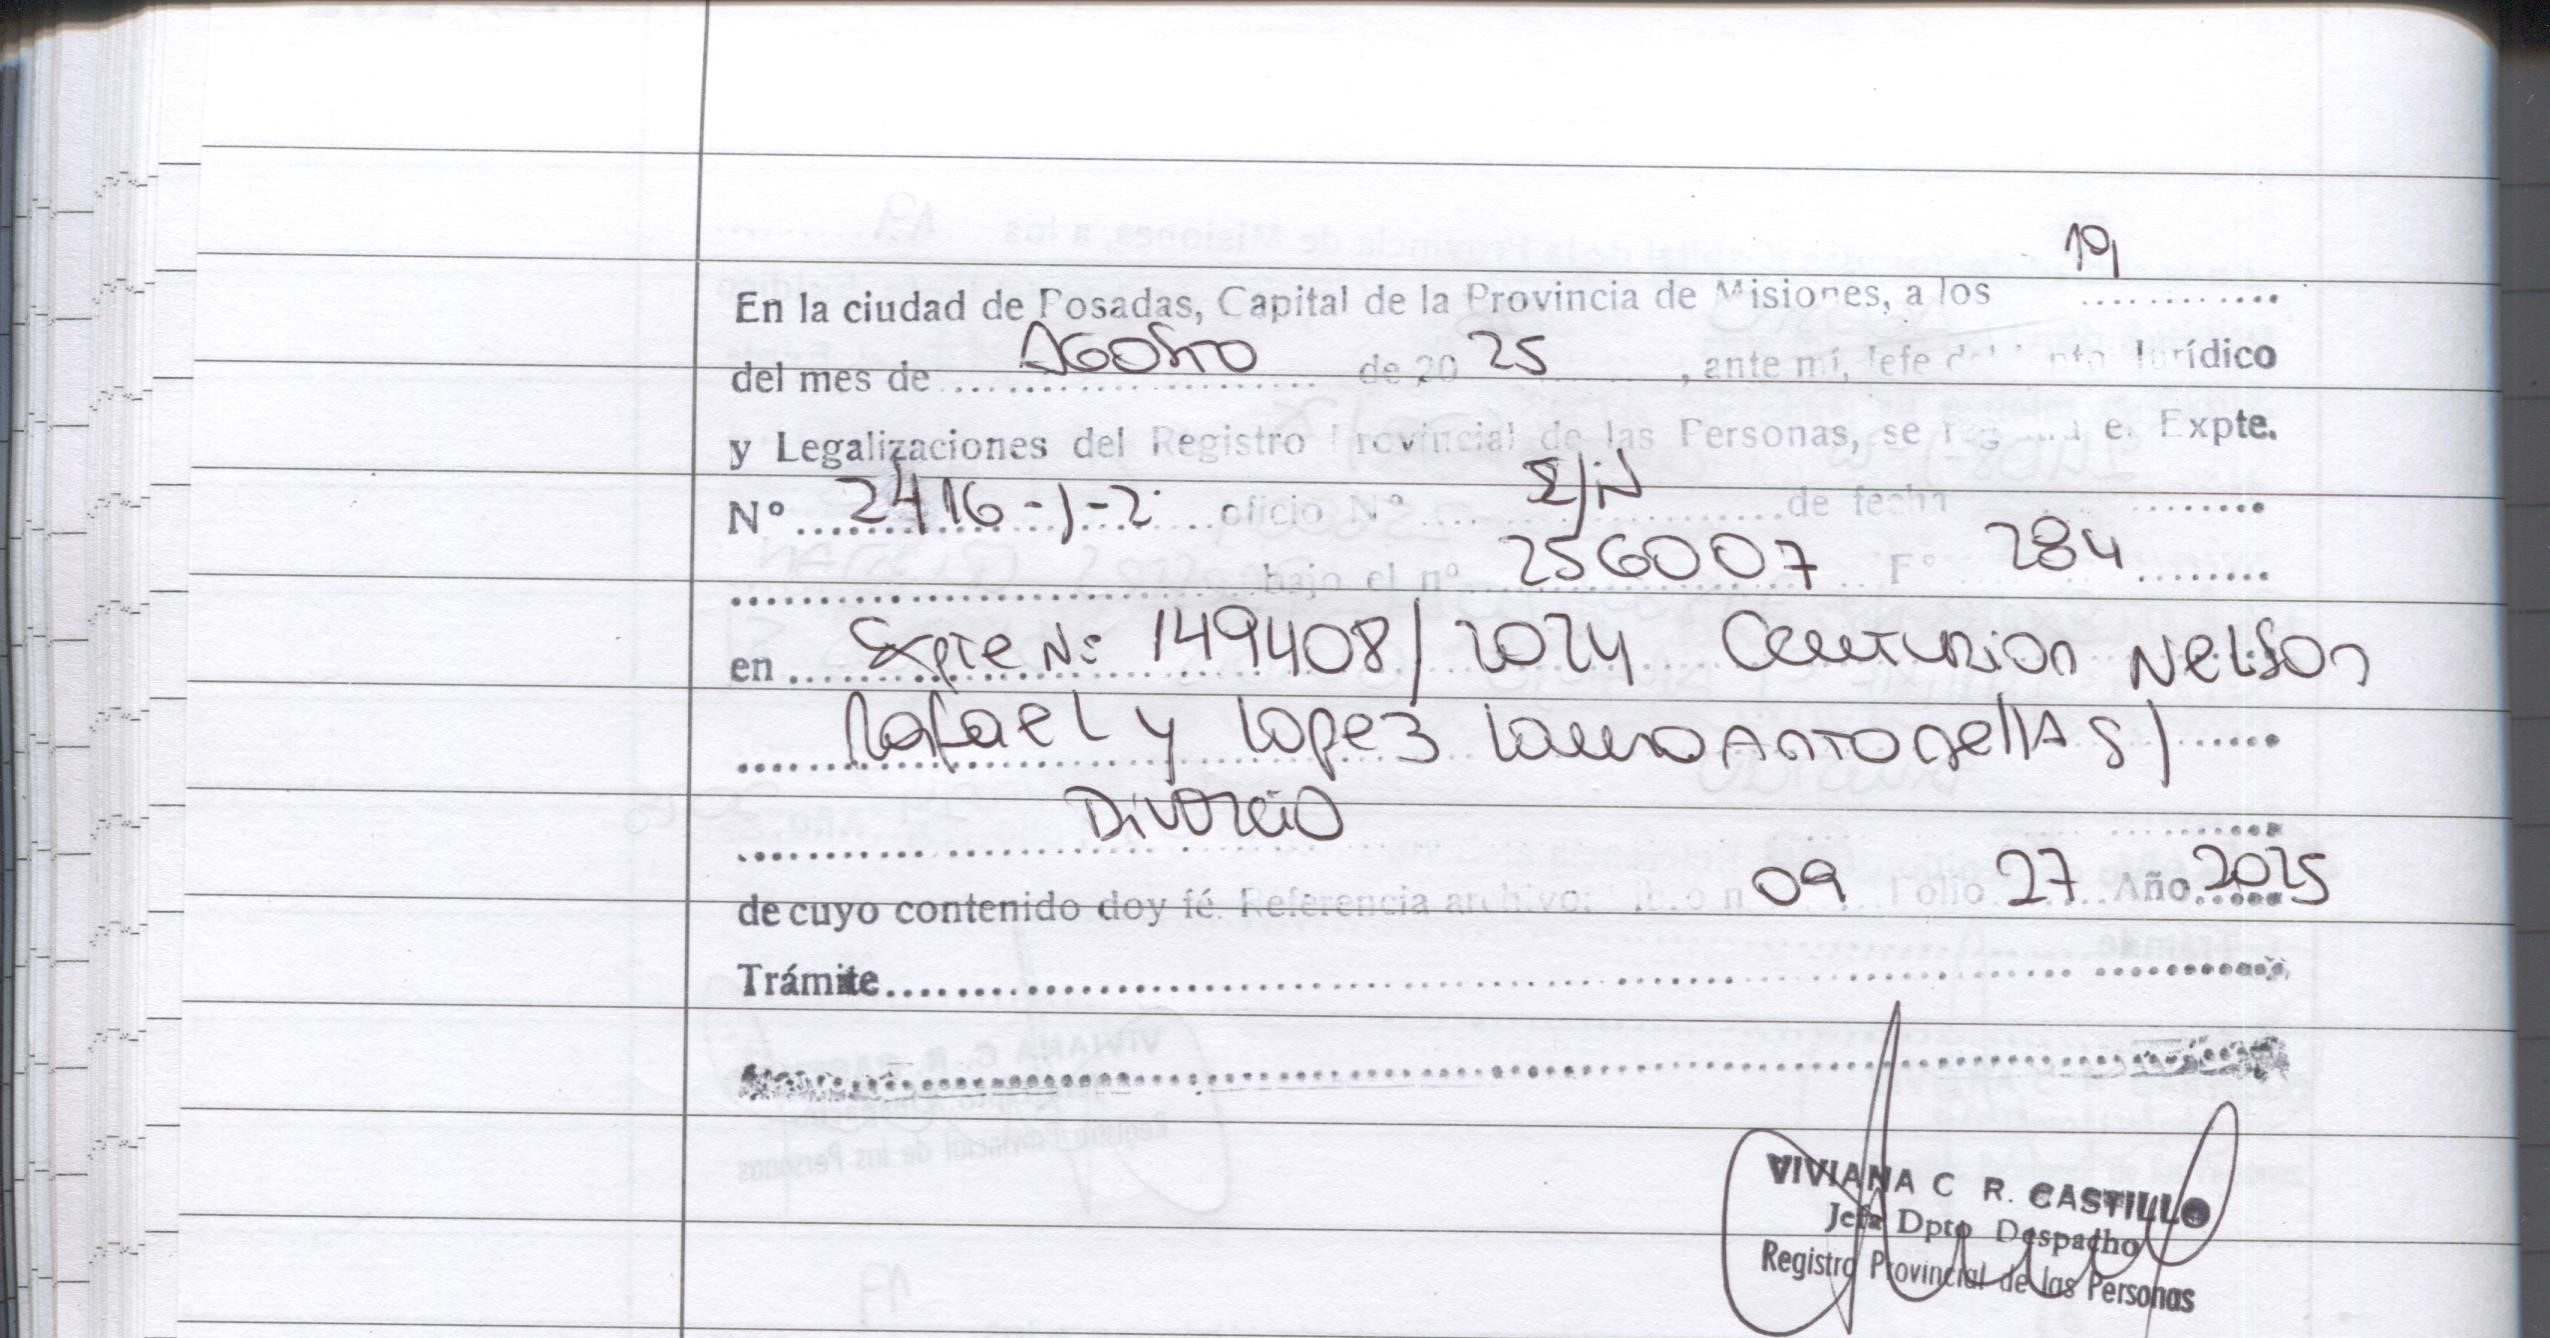 19
En la ciudad de Posadas, Capital de la Provincia de Misiones, a los ............
del mes de ........ Agosto ........ de 20 25 ........, ante mí, Jefe del Dpto Jurídico
y Legalizaciones del Registro Provincial de las Personas, se registra el Expte.
Nº ........ 2416-J-2 ........ oficio Nº ........ S/N ........ de fecha ........
........ bajo el nº 256007 ........ Fº 284 ........
en ........ Expte Nº 149408/2024 Centurion Nelson
Rafael y Lopez Laura Antonella S/
Divorcio
de cuyo contenido doy fé. Referencia archivo: Libro n 09 Folio 27 Año 2025
Trámite ........
VIVIANA C R. CASTILLO
Jefa Dpto Despacho
Registro Provincial de las Personas